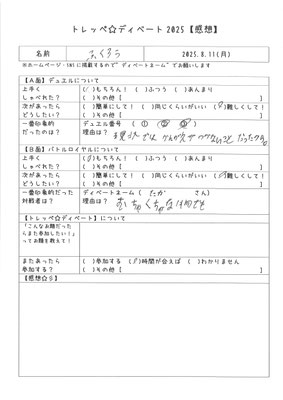 トレッペ☆ディベート2025【感想】
名前 ふくろう 2025.8.11(月)
※ホームページ・SNSに掲載するので"ディベートネーム"でお願いします
【A面】デュエルについて
上手くしゃべれた? (/)もちろん! ( )ふつう ( )あんまり
( )その他[ ]
次があったらどうしたい? ( )簡単にして! ( )同じくらいがいい (/)難しくして!
( )その他[ ]
一番印象的だったのは? デュエル番号 ( ① ② ③ )
理由は?
【B面】バトルロイヤルについて
上手くしゃべれた? (/)もちろん! ( )ふつう ( )あんまり
( )その他[ ]
次があったらどうしたい? ( )簡単にして! ( )同じくらいがいい (/)難しくして!
( )その他[ ]
一番印象的だった対戦者は? ディベートネーム( たか さん)
理由は? むちゃくちゃな
【トレッペ☆ディベート】について
「こんなお題だったらまた参加したい!」ってお題を教えて!
またあったら参加する? ( )参加する (/)時間が合えば ( )わかりません
( )その他[ ]
【感想☆彡】